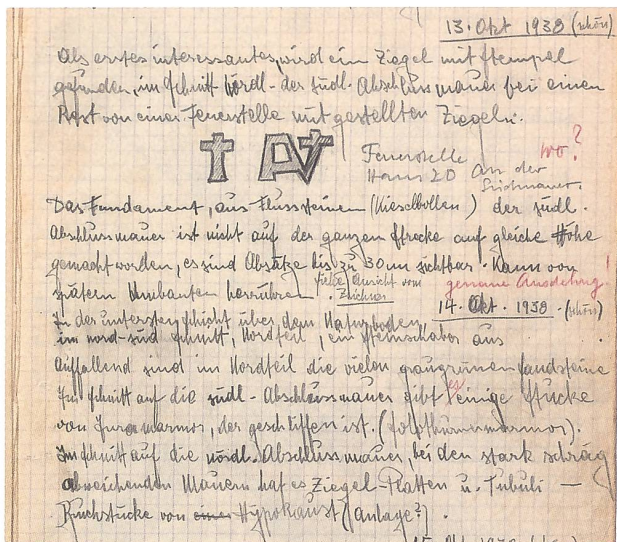 13. Okt 1938 (schön)
Als erstes interessantes, wird ein Ziegel mit Stempel
gefunden, im Schnitt nördl. der südl. Abschlussmauer bei einen
Rest von einer Feuerstelle mit gestellten Ziegeln.
Feuerstelle wo?
Haus 20 An der
Südmauer.
Das Fundament, aus Flussteinen (Kieselbollen) der südl.
Abschlussmauer ist nicht auf der ganzen Strecke auf gleiche Höhe
gemacht worden, es sind Absätze bis zu 30 cm sichtbar. Kann von
spätern Umbauten herrühren. siehe Ansicht von genaue Ausdehng!
Zeichner
14. Okt. 1938. (schön)
In der untersten Schicht über dem Naturboden
im nord-süd Schnitt, Nordteil, ein Steinschaber aus
Auffallend sind im Nordteil die vielen graugrünen Sandsteine
Im Schnitt auf die südl. Abschlussmauer gibt es einige Stücke
von Juramarmor, der geschliffen ist. (Solothurnermarmor).
Im Schnitt auf die nördl. Abschlussmauer, bei den stark schräg
abweichenden Mauern hat es Ziegel-Platten u. Tubuli —
Bruchstücke von einer Hypokaust (anlage?).
15. Okt 1938